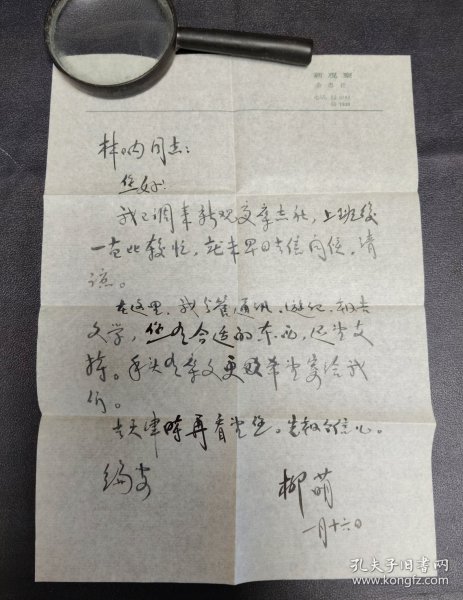 新观察
杂志社
林呐同志：
您好！
我已调来新观察杂志社，上班后
一直比较忙，就未早日去信问候，请
谅。
在这里，我分管通讯、游记、报告
文学，您有合适的东西，还望支
持。手头有杂文更盼希望寄给我
们。
去天津时再看望您。
编安
柳萌
一月十六日
孔夫子旧书网
www.kongfz.com